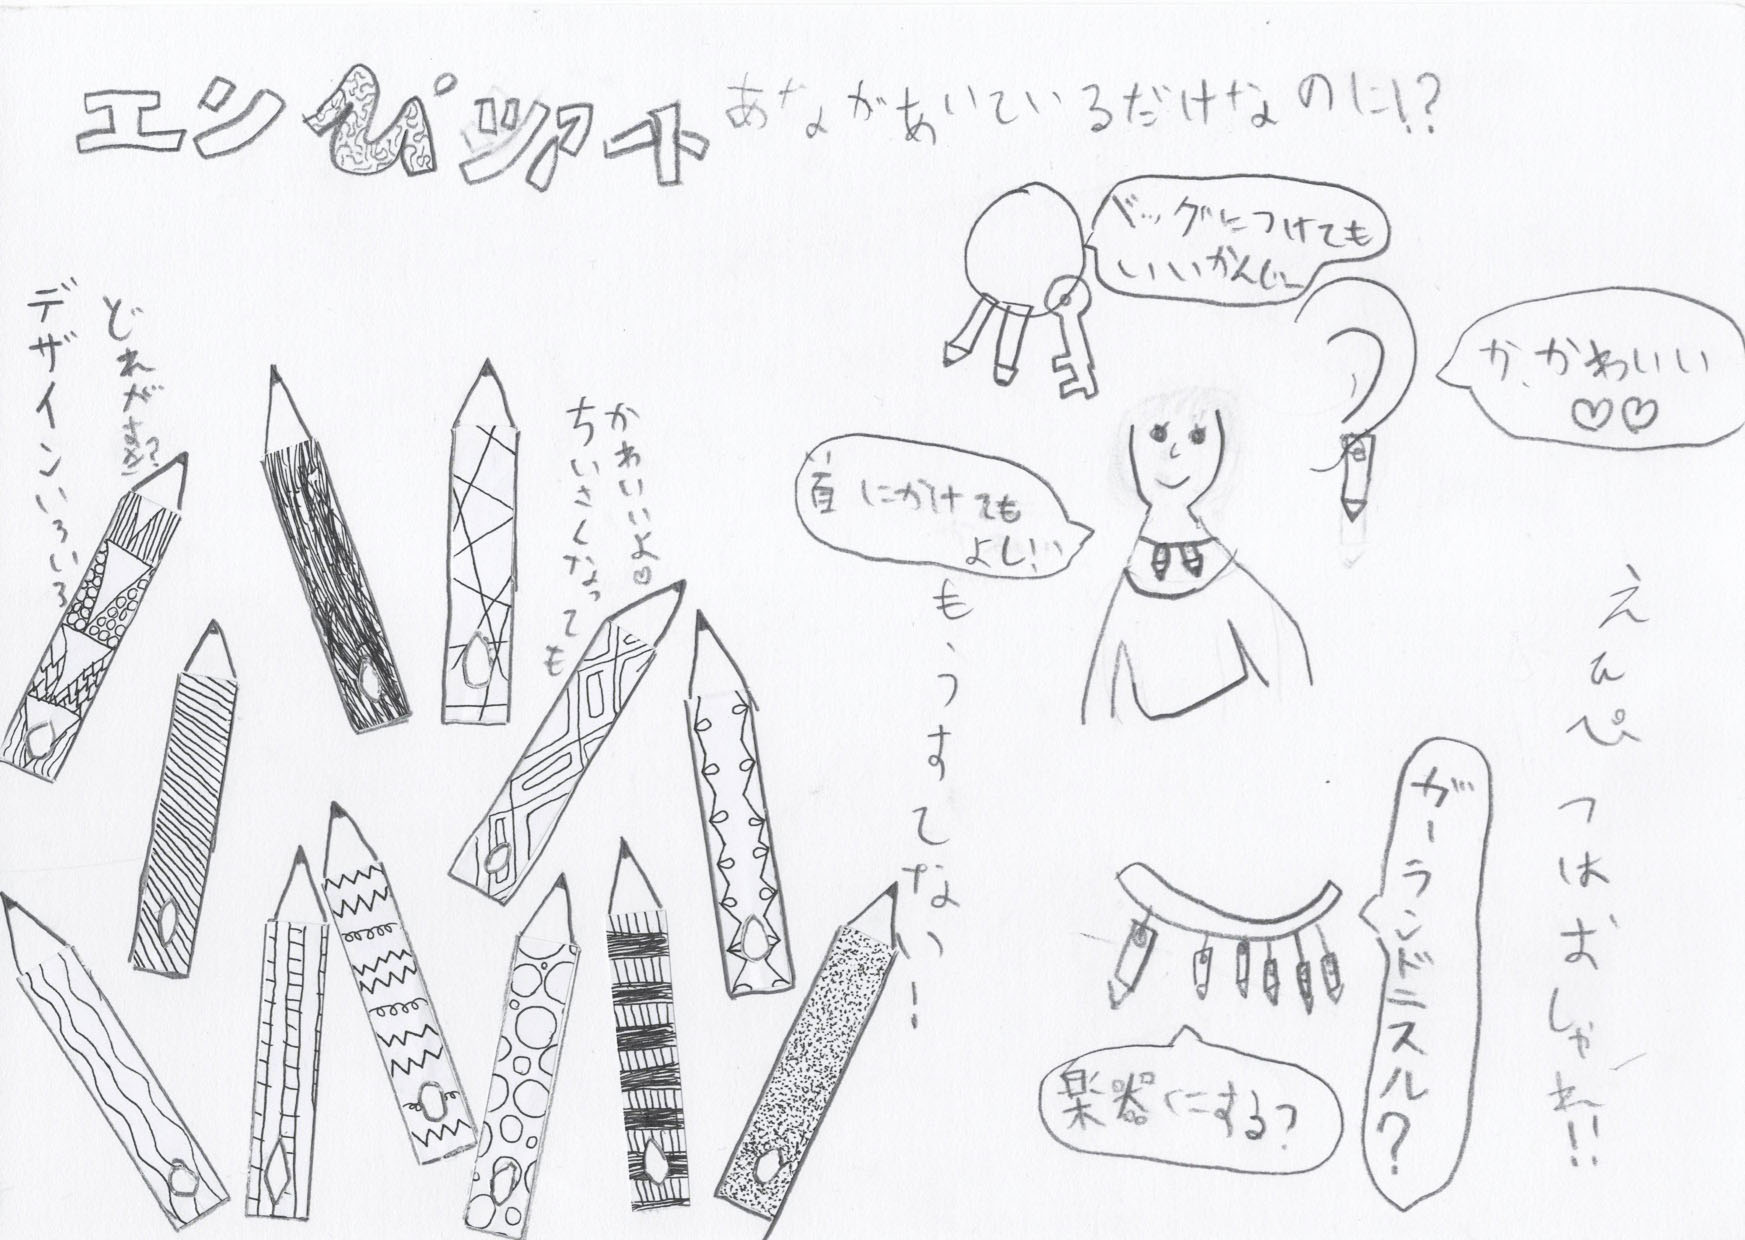 エンぴツアート
あながあいているだけなのに!?
バッグにつけても
いいかんじー
か、かわいい
♡♡
首にかけても
よし!
どれがすき?
デザインいろいろ
かわいいよ♡
ちいさくなっても
も、うすてない!
えんぴつはおしゃれ!!
ガーランドニスル?
楽器にする?